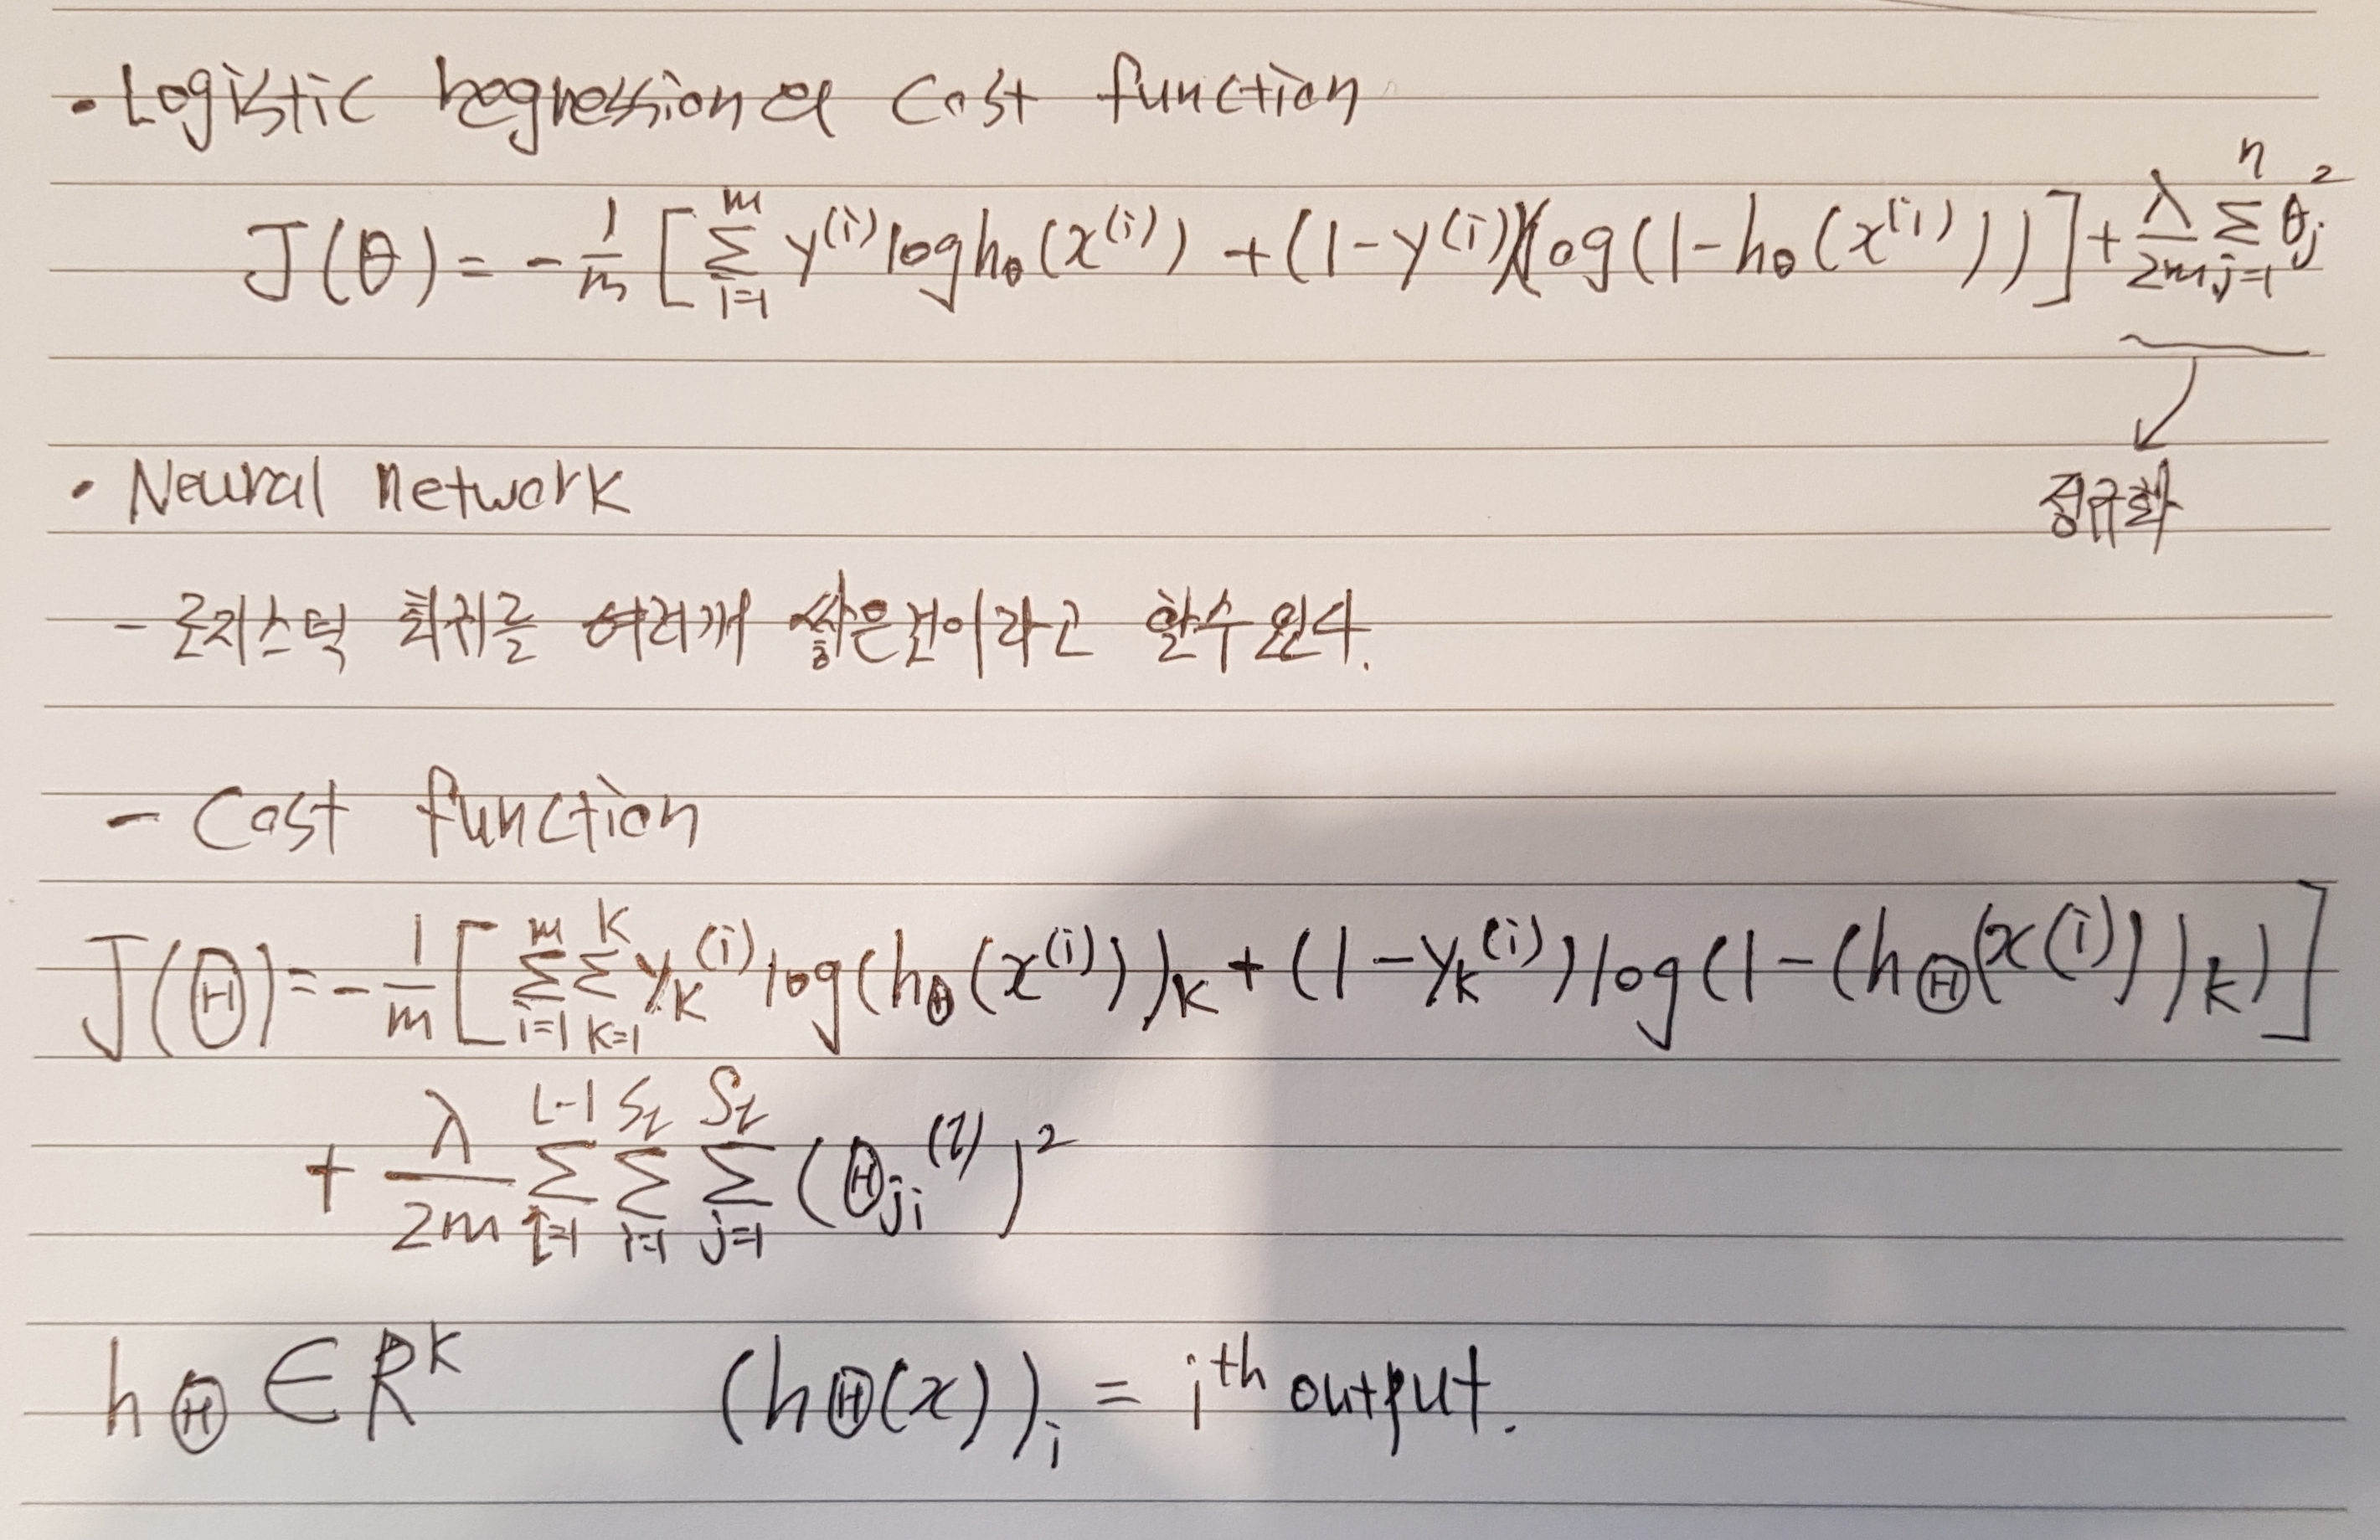 · Logistic hegression의 Cost function
J(θ) = - 1/m [ Σ_{i=1}^{m} y^{(i)} log h_θ(x^{(i)}) + (1-y^{(i)})log(1-h_θ(x^{(i)}))] + λ/2m Σ_{j=1}^{n} θ_j^2
정규화
· Neural network
- 로지스틱 회귀를 여러개 쌓은것이라고 할수있다.
- Cost function
J(Θ) = - 1/m [ Σ_{i=1}^{m} Σ_{k=1}^{K} y_k^{(i)} log(h_Θ(x^{(i)}))_k + (1-y_k^{(i)})log(1-(h_Θ(x(i)))_k)]
+ λ/2m Σ_{l=1}^{L-1} Σ_{i=1}^{S_l} Σ_{j=1}^{S_l} (Θ_{ji}^{(l)})^2
h_Θ ∈ R^K (hΘ(x))_i = i^{th} output.